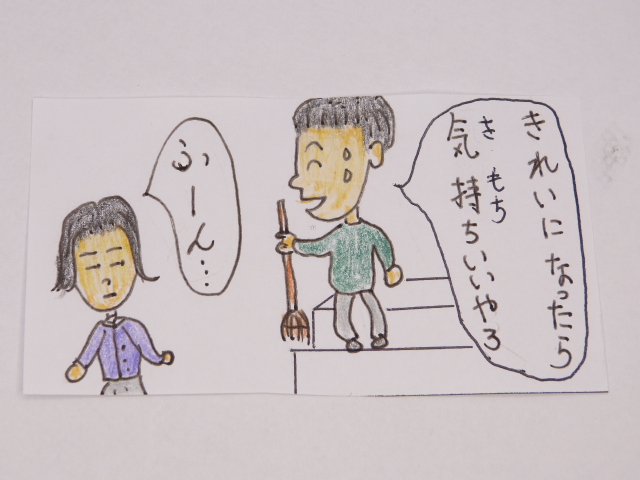 きれいになったら
気持ちいいやろ
きもち
ふーん…